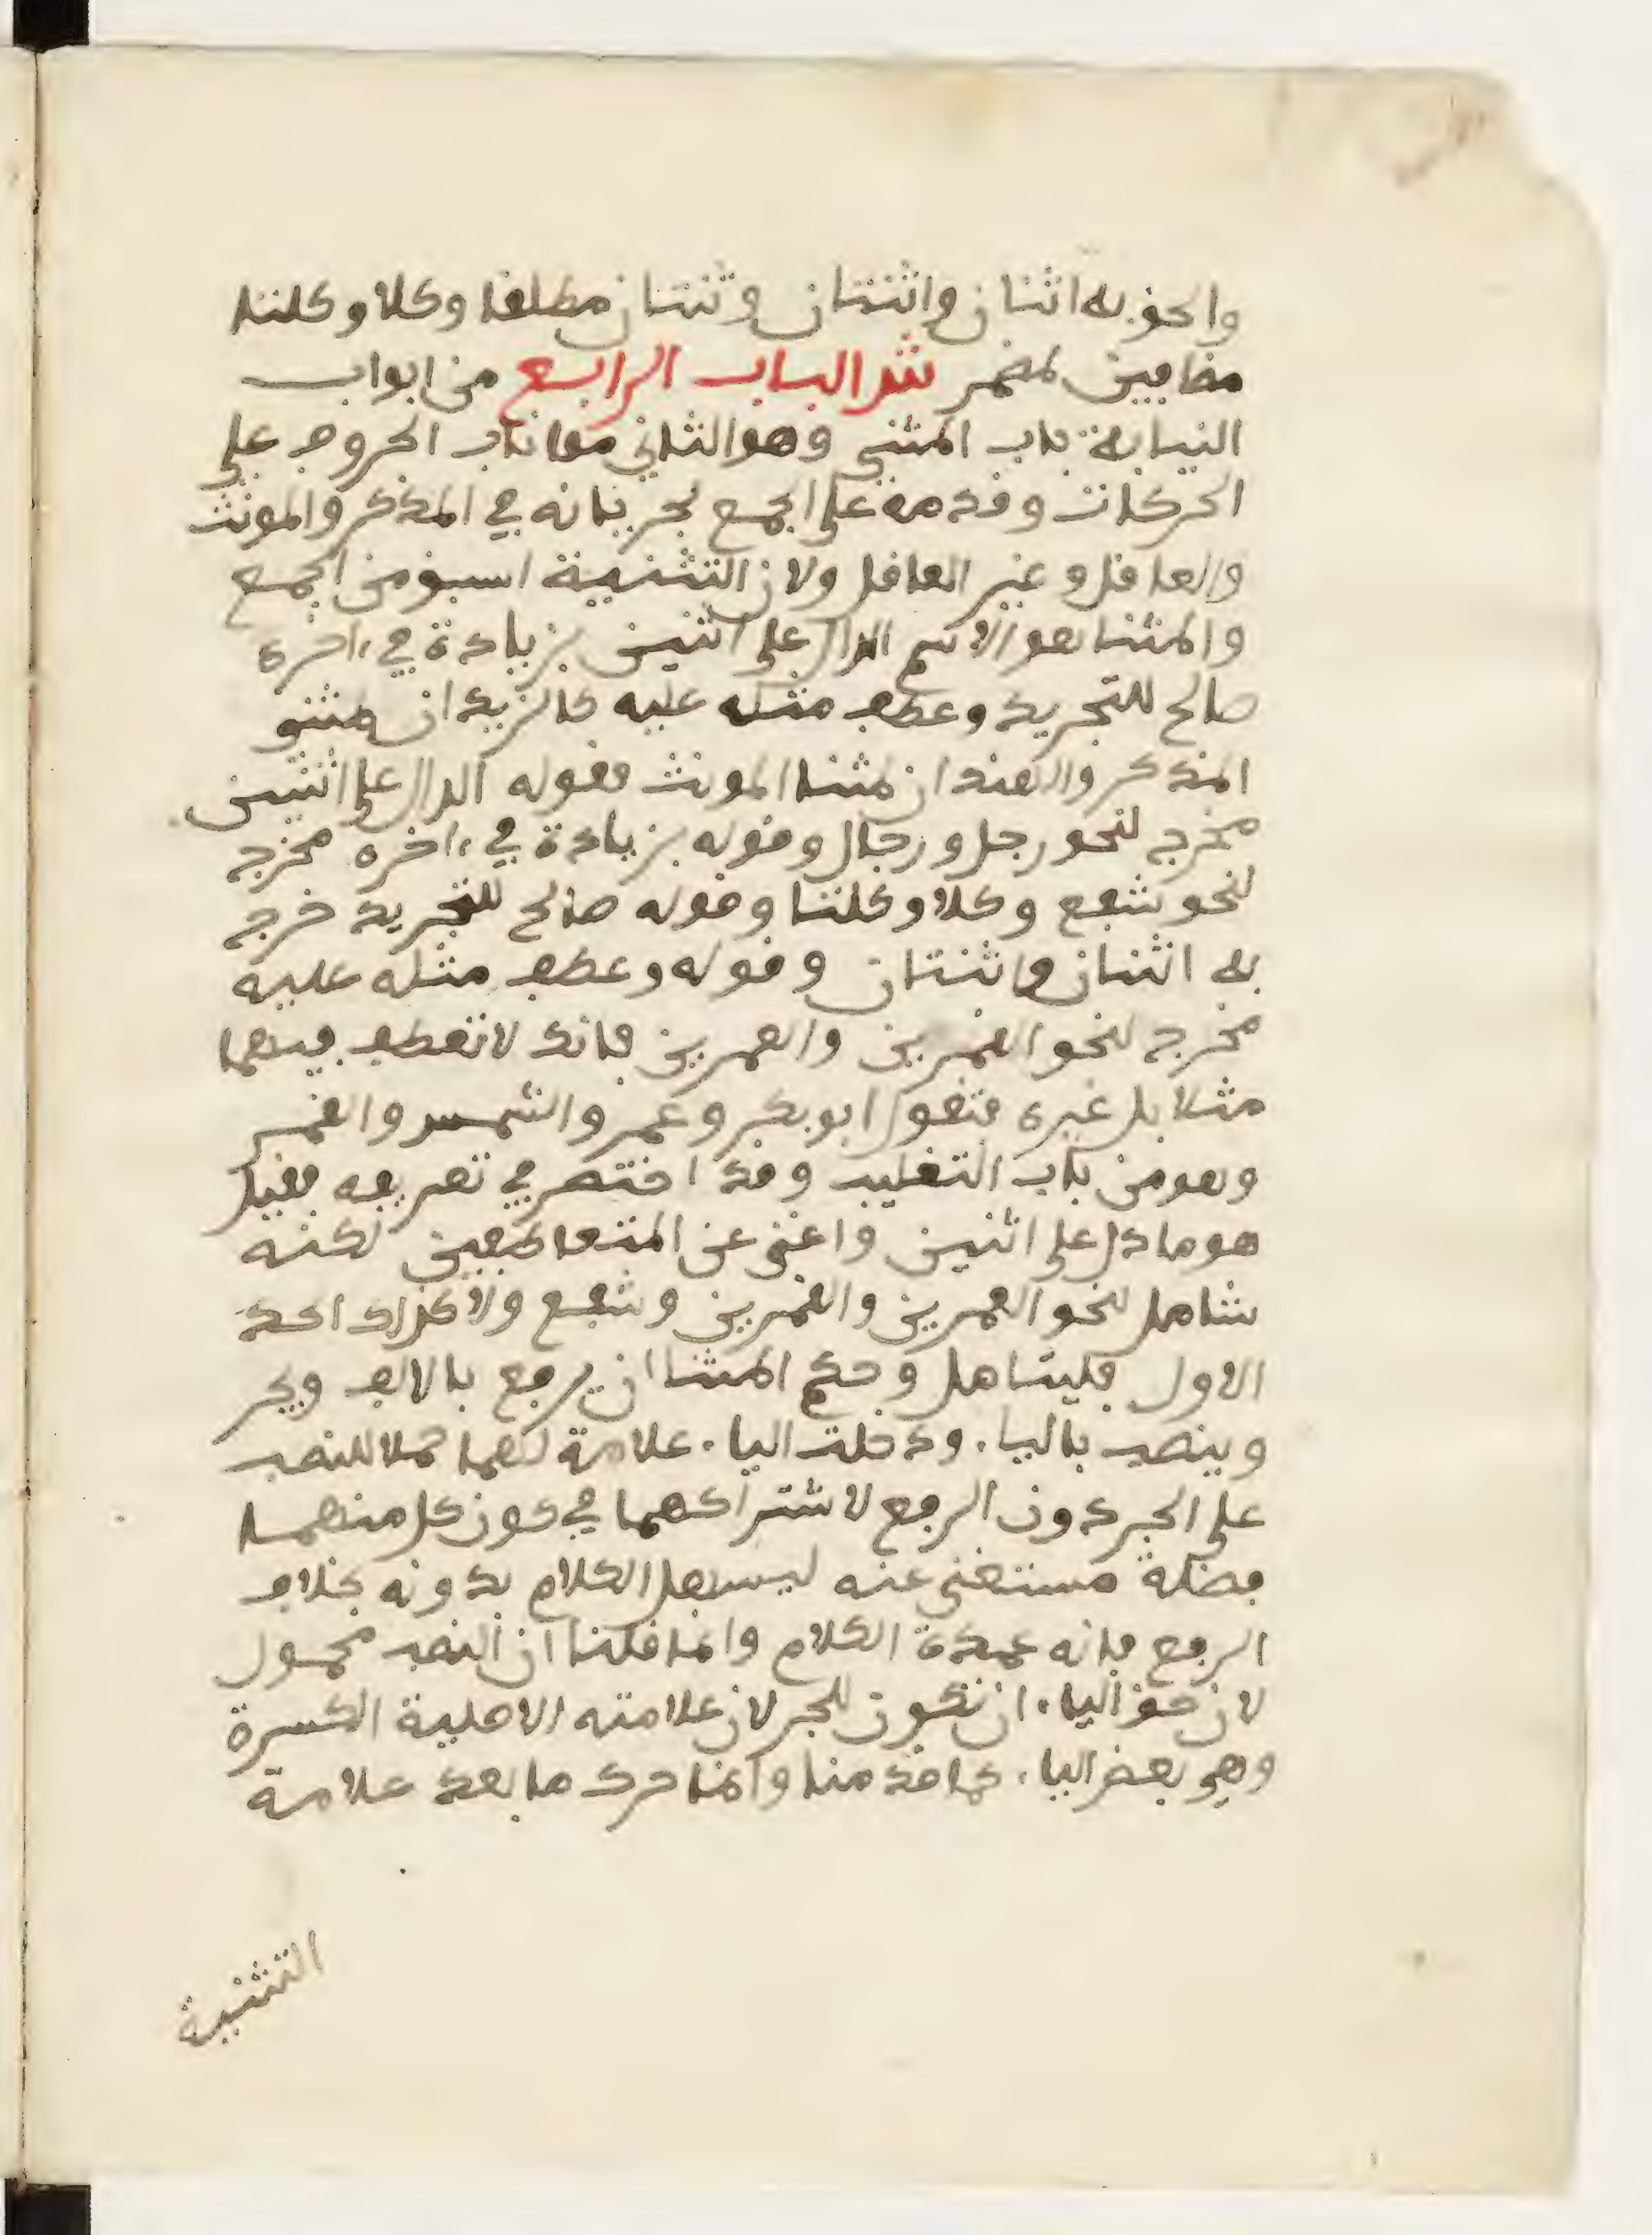 والحق به اثنان واثنتان وثنتان مطلقا وكلا وكلتا
مضافين لمضمر ش الباب الرابع من ابواب
النيابة باب المثنى وهو الثاني مما ناب الحروف على
الحركات وقدمه على الجمع لجريانه في المذكر والمونث
والعاقل وغير العاقل ولان التثنية اسبق من الجمع
والمثنا هو الاسم الدال على اثنين بزيادة في ءاخره
صالح للتجريد وعطف مثله عليه كالزيدان مثنى
المذكر والهندان مثنا المونث فقوله الدال على اثنين
مخرج لنحو رجل ورجال وقوله بزيادة في ءاخره مخرج
لنحو شفع وكلا وكلتا وقوله صالح للتجريد خرج
به اثنان واثنتان وقوله وعطف مثله عليه
مخرج لنحو القمرين والعمرين فانك لا تعطف فيهما
مثلا بل غيره فتقول ابو بكر وعمر والشمس والقمر
وهو من باب التغليب وقد اختصر في تعريفه فقيل
هو ما دل على اثنين واغنى عن المتعاطفين لكنه
شامل لنحو العمرين والقمرين وشفع ولا كذلك احد
الاول فليتامل وحكم المثنا ان يرفع بالالف ويجر
وينصب بالياء ودخلت الياء علامة لهما حملا للنصب
على الجر دون الرفع لاشتراكهما في كون كل منهما
فضلة مستغنى عنه ليستقل الكلام بدونه بخلاف
الرفع فانه عمدة الكلام وانما قلنا ان النصب محمول
لان حق الياء ان تكون للجر لان علامته الاصلية الكسرة
وهي بعض الياء كما قدمنا وانما حرك ما بعد علامة
التثنية